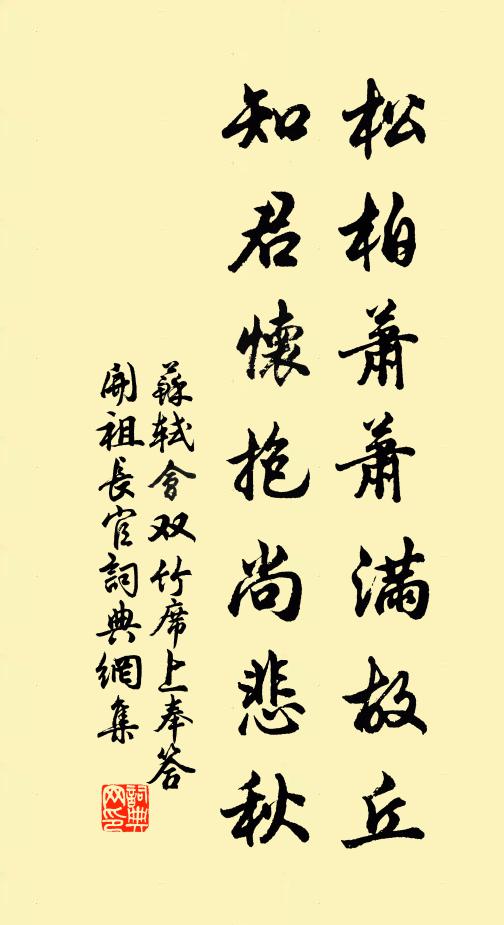 松柏蕭蕭滿故丘
知君懷抱尚悲秋
蘇軾會双竹席上奉答
開祖長官詞典網集
詞典
网印